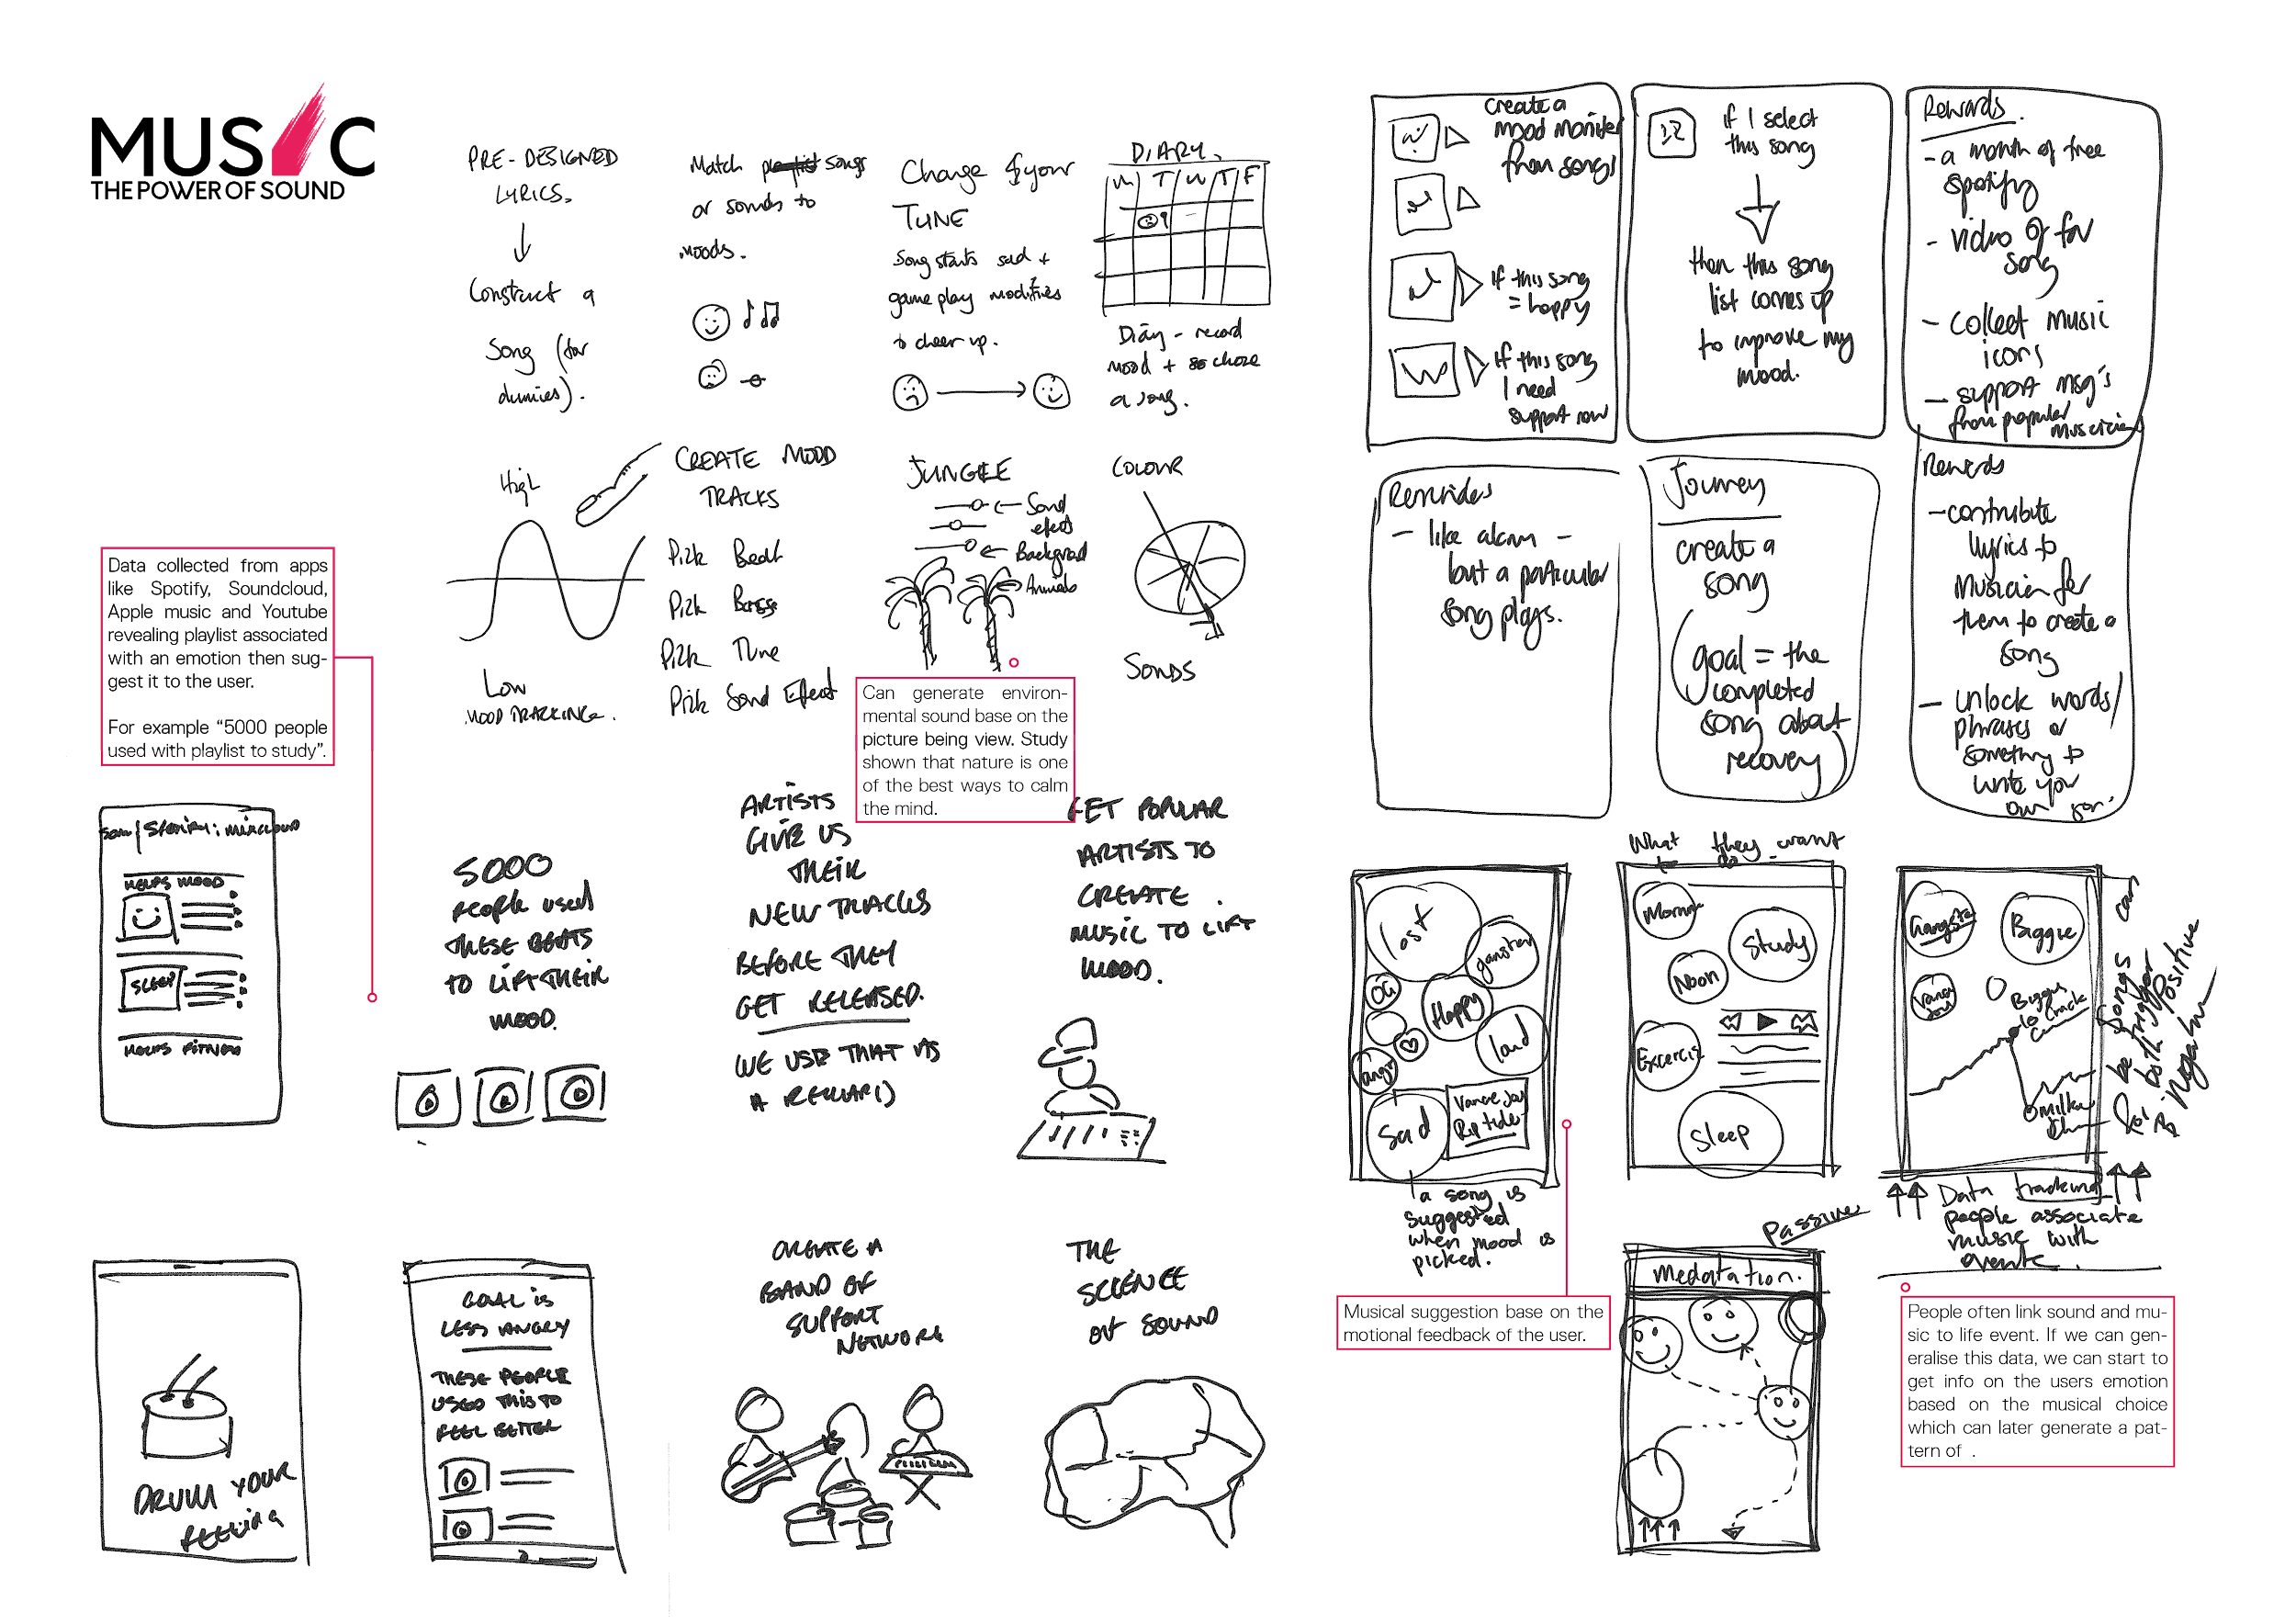 MUSIC
THE POWER OF SOUND
PRE-DESIGNED
LYRICS.
Construct a
Song (for
dumies).
Match songs
or sounds to
moods.
Change your
TUNE
Song starts sad +
game play modifies
to cheer up.
DIARY.
M T W T F
Diary - record
mood + chose
a song.
High
Low
MOOD TRACKING.
CREATE MOOD
TRACKS
Pick Beat
Pick Basse
Pick Tune
Pick Sond Effect
JUNGLE
Sond
efect
Backgrond
Animals
COLOUR
SONDS
Data collected from apps
like Spotify, Soundcloud,
Apple music and Youtube
revealing playlist associated
with an emotion then sug-
gest it to the user.
For example “5000 people
used with playlist to study”.
Can generate environ-
mental sound base on the
picture being view. Study
shown that nature is one
of the best ways to calm
the mind.
HELPS MOOD
SLEEP
HELPS FITNESS
5000
PEOPLE USED
THESE BEATS
TO LIFT THEIR
MOOD.
ARTISTS
GIVE US
THEIR
NEW TRACKS
BEFORE THEY
GET RELEASED.
WE USE THAT AS
A REWARD
GET POPULAR
ARTISTS TO
CREATE
MUSIC TO LIFT
MOOD.
DRUM YOUR
FEELING
GOAL IS
LESS ANGRY
THESE PEOPLE
USED THIS TO
FEEL BETTER
CREATE A
BAND OF
SUPPORT
NETWORK
THE
SCIENCE
OF SOUND
Create a
mood moniter
from songs
If this song
= happy
If this song
I need
support now
if I select
this song
then this song
list comes up
to improve my
mood.
Rewards.
- a month of free
spotify
- video of fav
song
- collect music
icons
- support msg's
from popular
muscician
Reminders
- like alarm -
but a particular
song plays.
Journey
create a
song
(goal = the
completed
song about
recovery)
Rewards
- contribute
lyrics to
musician for
them to create a
song
- unlock words/
phrases or
something to
write your
own
lost
gangster
OG
Happy
loud
angr
Sad
Vance Joy
Riptide
a song is
suggested
when mood is
picked.
What they want
to do
Morning
Study
Noon
Excercis
Sleep
Gangsta
Biggie
Vance
Joy
Biggie
to Crack
Milky
Songs can
be trigger
for both Positive
& Negative
Data tracking
people associate
music with
events.
Passive
Medatation.
Musical suggestion base on the
motional feedback of the user.
People often link sound and mu-
sic to life event. If we can gen-
eralise this data, we can start to
get info on the users emotion
based on the musical choice
which can later generate a pat-
tern of .